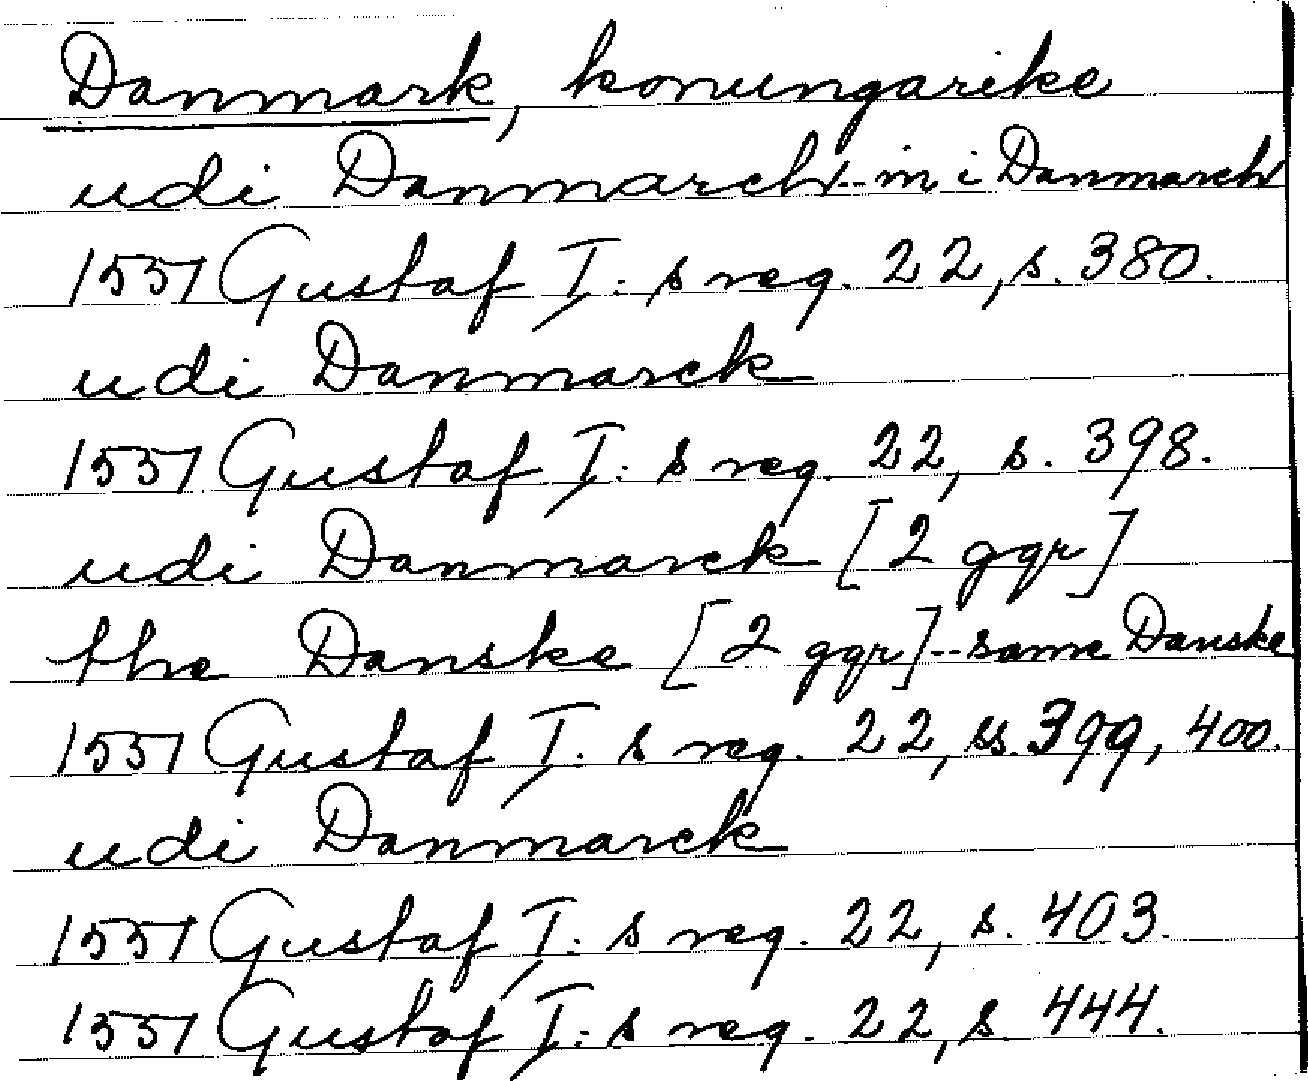 Danmark, konungarike
udi Danmarck -- in i Danmarck
1551 Gustaf I:s reg. 22, s. 380.
udi Danmarck
1551 Gustaf I:s reg. 22, s. 398.
udi Danmarck [2 ggr]
the Danske [2 ggr] -- same Danske
1551 Gustaf I:s reg. 22, ss. 399, 400.
udi Danmarck
1551 Gustaf I:s reg. 22, s. 403.
1551 Gustaf I:s reg. 22, s. 444.